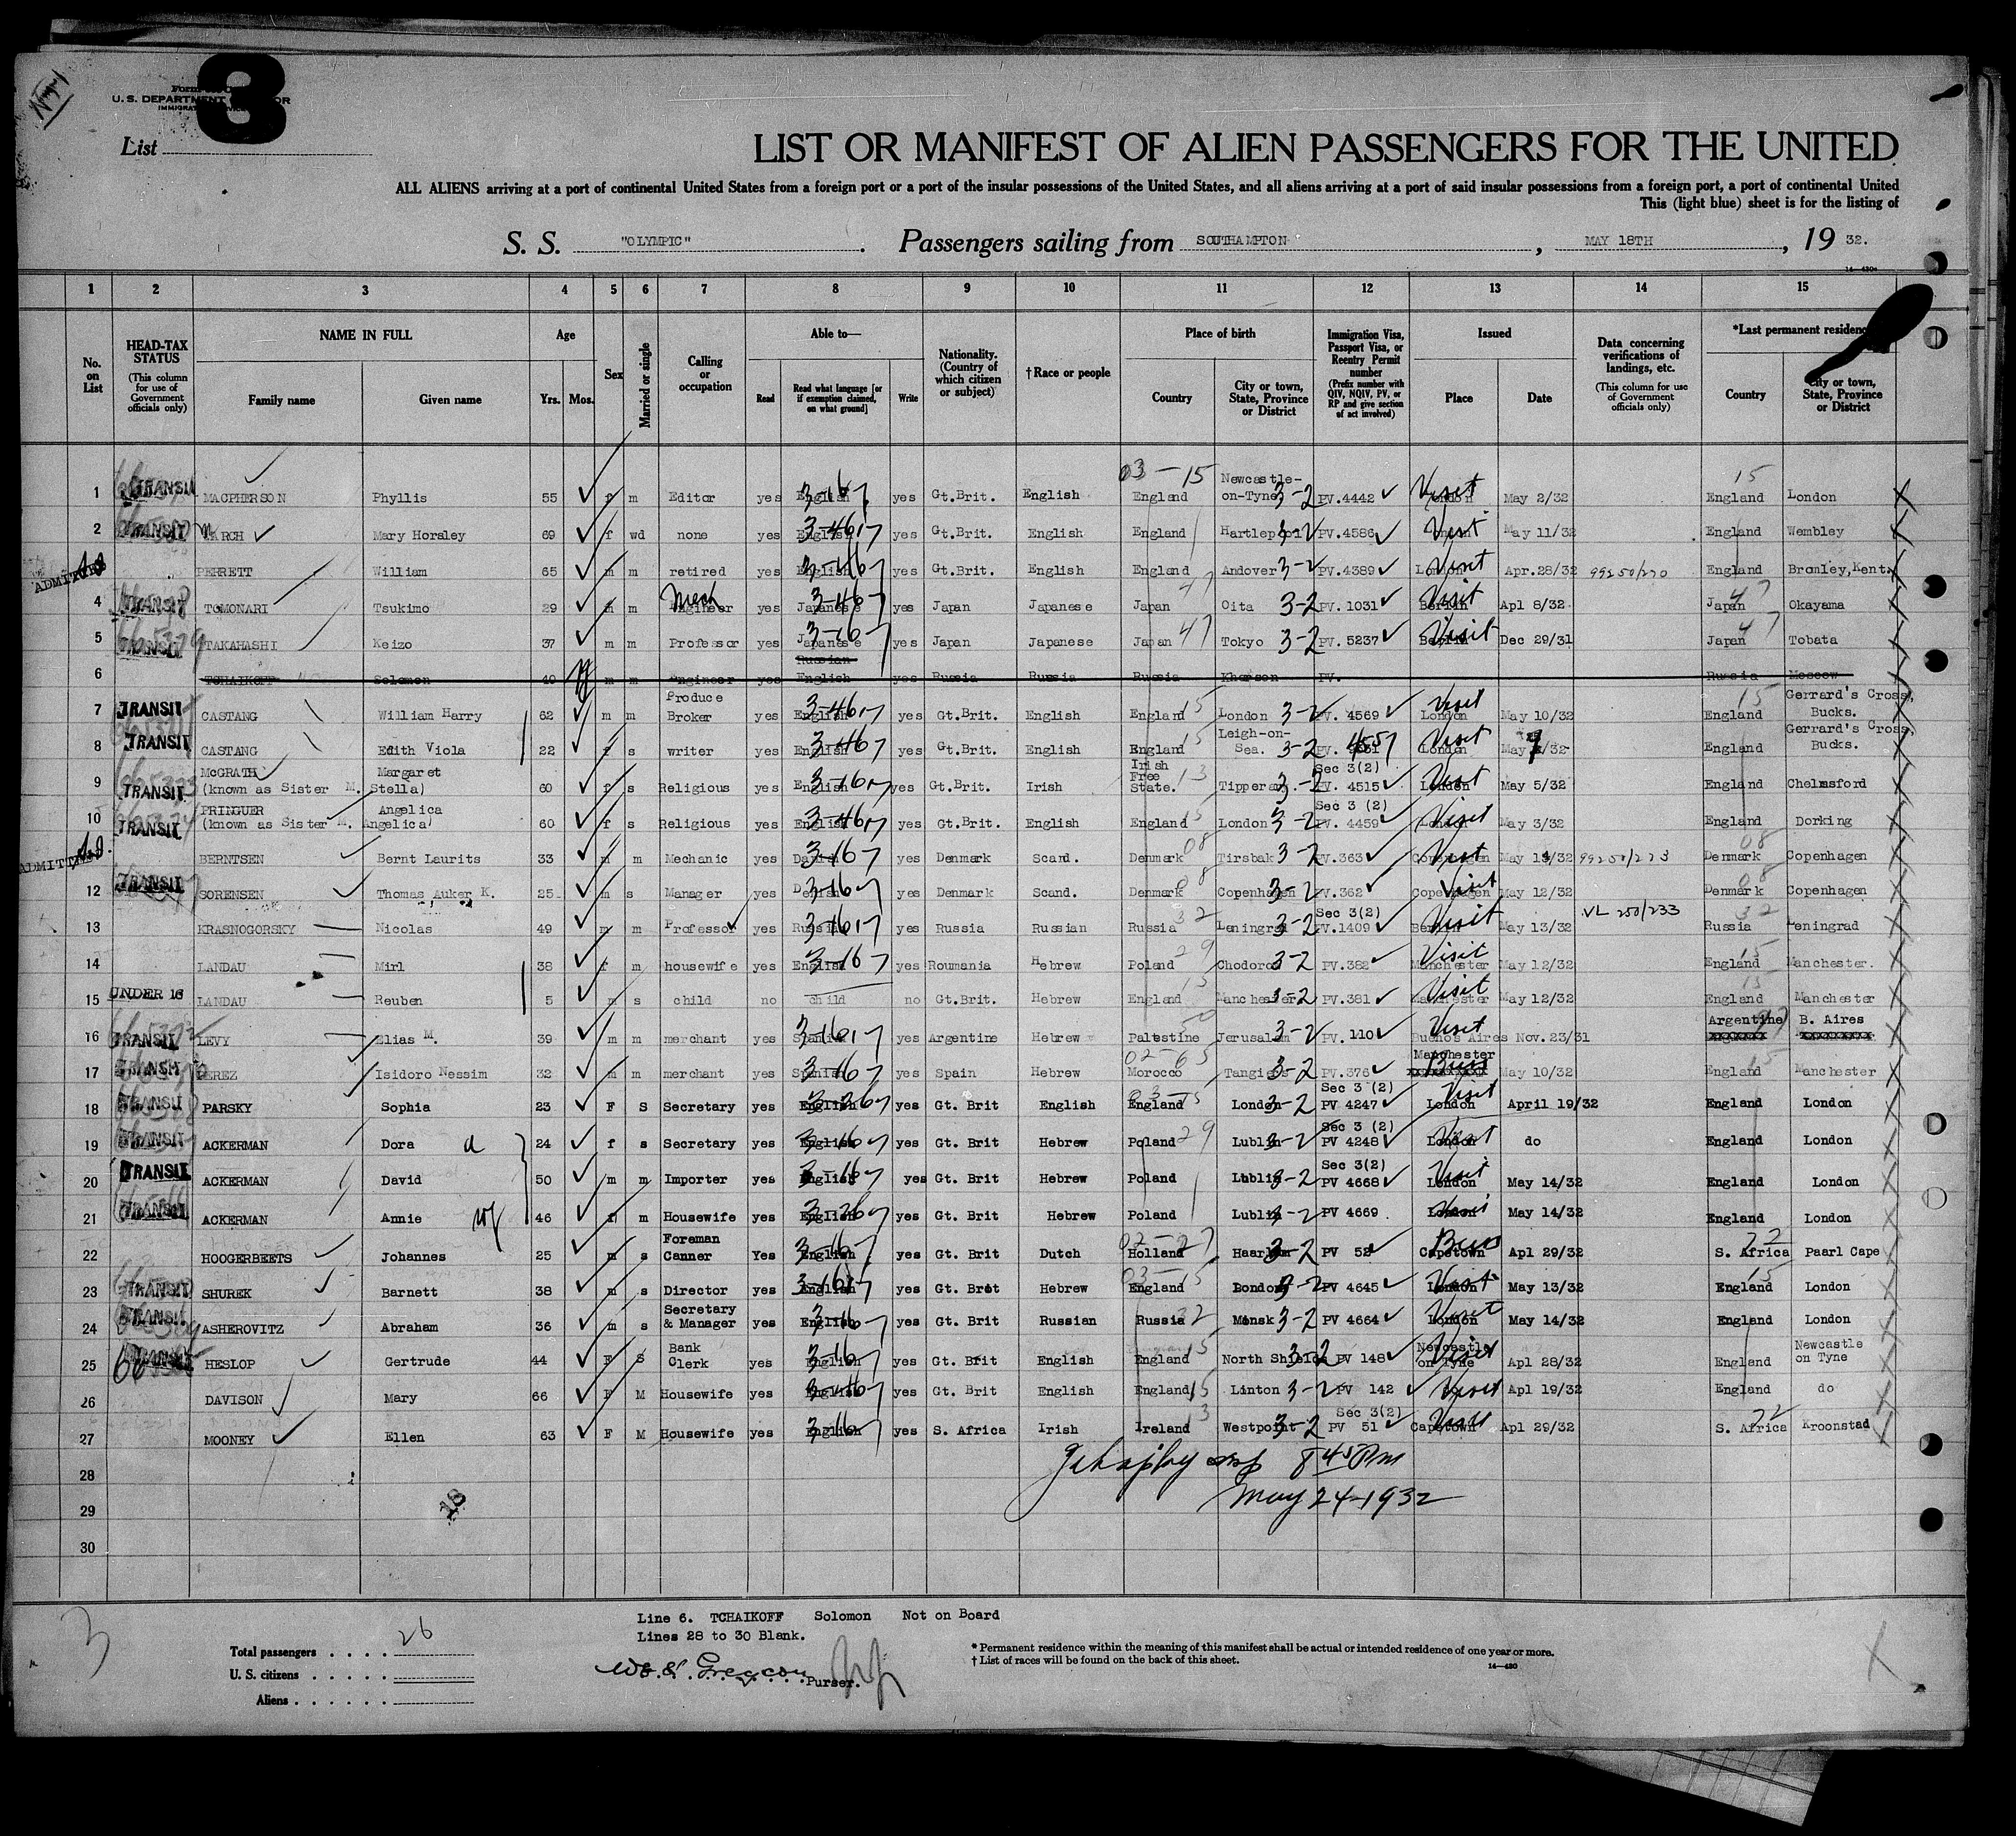 3
U. S. DEPARTMENT
List
LIST OR MANIFEST OF ALIEN PASSENGERS FOR THE UNITED
ALL ALIENS arriving at a port of continental United States from a foreign port or a port of the insular possessions of the United States, and all aliens arriving at a port of said insular possessions from a foreign port, a port of continental United
This (light blue) sheet is for the listing of
S. S. "OLYMPIC". Passengers sailing from SOUTHAMPTON, MAY 18TH, 19 32.
1 2 3 4 5 6 7 8 9 10 11 12 13 14 15
No. on List
HEAD-TAX STATUS (This column for use of Government officials only)
NAME IN FULL Family name Given name
Age Yrs. Mos.
Sex
Married or single
Calling or occupation
Able to— Read Read what language [or if exemption claimed, on what ground] Write
Nationality. (Country of which citizen or subject)
†Race or people
Place of birth Country City or town, State, Province or District
Immigration Visa, Passport Visa, or Reentry Permit number (Prefix number with QIV, NQIV, PV, or RP and give section of act involved)
Issued Place Date
Data concerning verifications of landings, etc. (This column for use of Government officials only)
*Last permanent residence Country City or town, State, Province or District
1 TRANSIT MACPHERSON Phyllis 55 f m Editor yes English 3-167 yes Gt.Brit. English England 03-15 Newcastle-on-Tyne 3-2 PV.4442 Visit London May 2/32 England 15 London
2 TRANSIT MARCH Mary Horsley 69 f wd none yes English yes Gt.Brit. English England Hartlepool PV.4586 Visit May 11/32 England Wembley
ADMITTED PERRETT William 65 m m retired yes English yes Gt.Brit. English England Andover 3-2 PV.4389 Visit London Apr.28/32 99250/270 England Bromley,Kent.
4 TRANSIT TOMONARI Tsukimo 29 m m Mech Engineer yes Japanese yes Japan Japanese Japan 47 Oita 3-2 PV. 1031 Visit Berlin Apl 8/32 Japan 47 Okayama
5 TRANSIT TAKAHASHI Keizo 37 m m Professor yes Japanese yes Japan Japanese Japan 47 Tokyo 3-2 PV. 5237 Visit Berlin Dec 29/31 Japan 47 Tobata
6 TCHAIKOFF Solomon 40 m m engineer yes Russian English yes Russia Russia Russia Kherson PV. Russia Moscow
7 TRANSIT CASTANG William Harry 62 m m Produce Broker yes English yes Gt.Brit. English England 15 London 3-2 PV. 4569 Visit London May 10/32 England 15 Gerrard's Cross, Bucks.
8 TRANSIT CASTANG Edith Viola 22 f s writer yes English yes Gt.Brit. English England 15 Leigh-on-Sea. 3-2 PV. 4551 Visit London May 9/32 England Gerrard's Cross, Bucks.
9 TRANSIT McGRATH Margaret (known as Sister M. Stella) 60 f s Religious yes English yes Gt.Brit. Irish Irish Free State. 13 Tipperary 3-2 Sec 3(2) PV. 4515 Visit London May 5/32 England Chelmsford
10 TRANSIT PRINGUER Angelica (known as Sister M. Angelica) 60 f s Religious yes English yes Gt.Brit. English England 15 London 3-2 Sec 3 (2) PV. 4459 Visit London May 3/32 England Dorking
ADMITTED BERNTSEN Bernt Laurits 33 m m Mechanic yes Danish 3-167 yes Denmark Scand. Denmark 08 Tirsbak 3-2 PV.363 Visit Copenhagen May 13/32 99250/273 Denmark 08 Copenhagen
12 TRANSIT SORENSEN Thomas Auker K. 25 m s Manager yes Danish yes Denmark Scand. Denmark 08 Copenhagen 3-2 PV.362 Visit Copenhagen May 12/32 Denmark 08 Copenhagen
13 KRASNOGORSKY Nicolas 49 m m Professor yes Russian yes Russia Russian Russia 32 Leningrad 3-2 Sec 3(2) PV.1409 Visit Berlin May 13/32 VL 250/233 Russia 32 Leningrad
14 LANDAU Mirl 38 f m housewife yes English 3-167 yes Roumania Hebrew Poland 29 Chodorov 3-2 PV.382 Visit Manchester May 12/32 England 15 Manchester.
15 UNDER 16 LANDAU Reuben 5 m s child no child no Gt.Brit. Hebrew England 15 Manchester 3-2 PV.381 Visit Manchester May 12/32 England 15 Manchester
16 TRANSIT LEVY Elias M. 39 m m merchant yes Spanish yes Argentine Hebrew Palestine 50 Jerusalem 3-2 PV. 110 Visit Buenos Aires Nov. 23/31 Argentine B. Aires
17 TRANSIT PEREZ Isidoro Nessim 32 m m merchant yes Spanish 3-167 yes Spain Hebrew Morocco 02-65 Tangiers 3-2 PV.376 Manchester Buss May 10/32 England 15 Manchester
18 TRANSIT PARSKY Sophia 23 F S Secretary yes English yes Gt. Brit English England 03-15 London 3-2 Sec 3 (2) PV 4247 Visit London April 19/32 England London
19 TRANSIT ACKERMAN Dora d 24 f s Secretary yes English yes Gt. Brit Hebrew Poland 29 Lublin 3-2 Sec 3 (2) PV 4248 Visit London do England London
20 TRANSIT ACKERMAN David 50 m m Importer yes English yes Gt. Brit Hebrew Poland Lublin 3-2 Sec 3(2) PV 4668 Visit London May 14/32 England London
21 TRANSIT ACKERMAN Annie wf 46 f m Housewife yes English yes Gt. Brit Hebrew Poland Lublin 3-2 PV 4669 Visit London May 14/32 England London
22 HOOGERBEETS Johannes 25 m s Foreman Canner Yes English yes Gt. Brit Dutch Holland 02-27 Haarlem 3-2 PV 52 Buss Capetown Apl 29/32 S. Africa 72 Paarl Cape
23 TRANSIT SHUREK Barnett 38 m s Director yes English yes Gt. Brit Hebrew England 03-15 London 3-2 PV 4645 Visit London May 13/32 England 15 London
24 TRANSIT ASHEROVITZ Abraham 36 m s Secretary & Manager yes English yes Gt. Brit Russian Russia 32 Minsk 3-2 PV 4664 Visit London May 14/32 England London
25 TRANSIT HESLOP Gertrude 44 F S Bank Clerk yes English yes Gt. Brit English England 15 North Shields 3-2 PV 148 Visit Newcastle on Tyne Apl 28/32 England Newcastle on Tyne
26 DAVISON Mary 66 F M Housewife yes English yes Gt. Brit English England 15 Linton 3-2 PV 142 Visit Apl 19/32 England do
27 MOONEY Ellen 63 F M Housewife yes English yes S. Africa Irish Ireland 3 Westpoint 3-2 Sec 3(2) PV 51 Visit Capetown Apl 29/32 S. Africa 72 Kroonstad
28
8 45 Pm
29
May 24-1932
30
Line 6. TCHAIKOFF Solomon Not on Board
Lines 28 to 30 Blank.
3
Total passengers . . . . 26
U. S. citizens . . . . .
Aliens . . . . . .
Purser.
* Permanent residence within the meaning of this manifest shall be actual or intended residence of one year or more.
† List of races will be found on the back of this sheet.
14—430